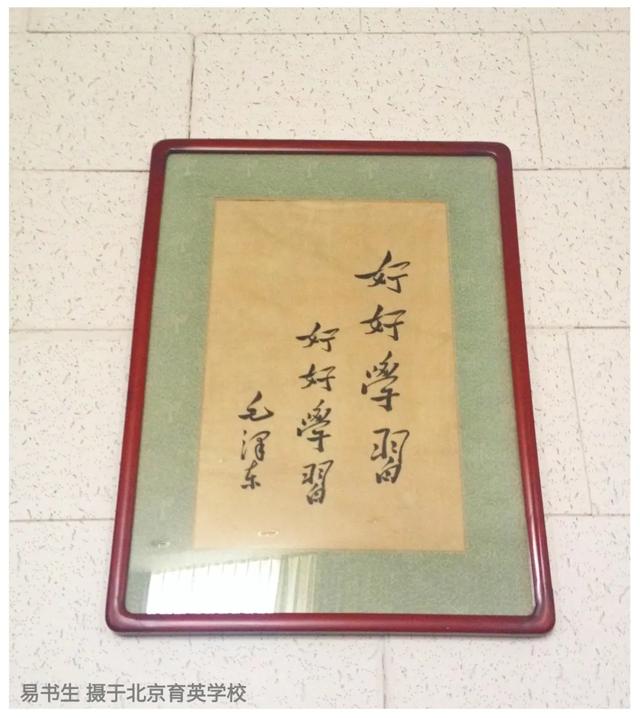 好好學習
好好學習
毛澤东
易书生 摄于北京育英学校